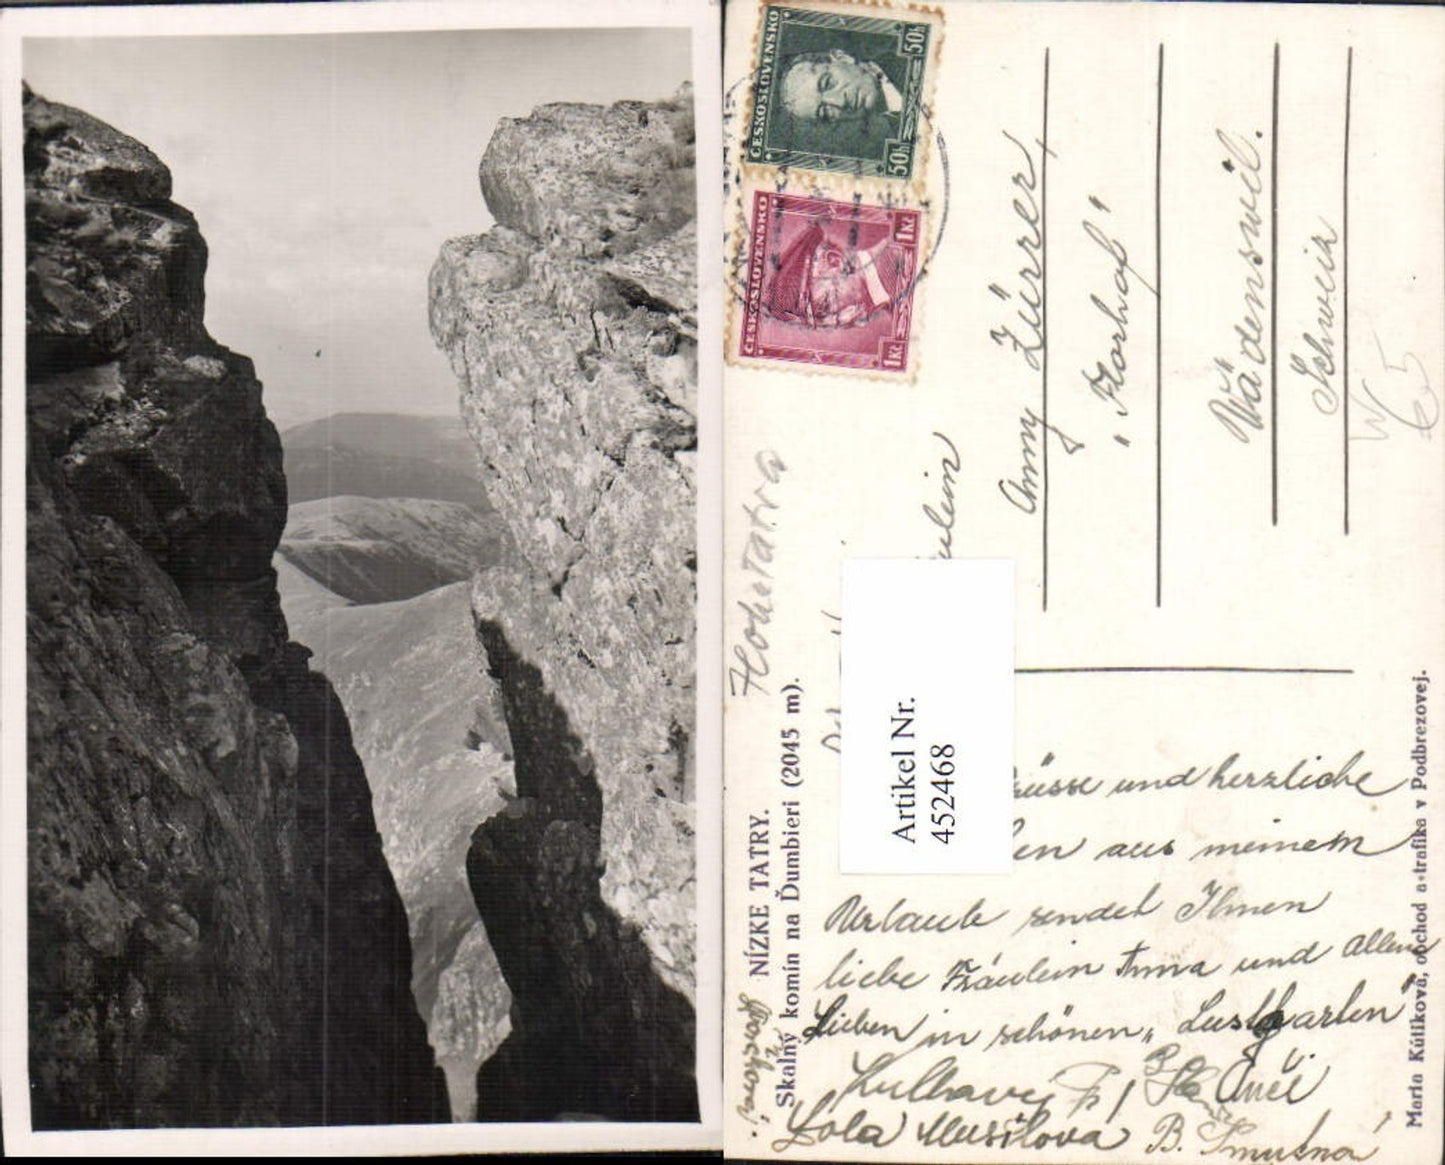 ČESKOSLOVENSKO
50h
50h
ČESKOSLOVENSKO
1Kč
1Kč
Anny Zürrer,
„Florhof"
Wädenswil.
Schweiz
Artikel Nr.
452468
NÍZKE TATRY.
Skalný komín na Ďumbieri (2045 m).
und herzliche
aus meinem
Urlaube sendet Ihnen
liebe Fräulein Anna und Allen
Lieben in schönen „Lustgarten"
Lola Musilová B. Smutná
Maria Kútiková, obchod a trafika v Podbrezovej.